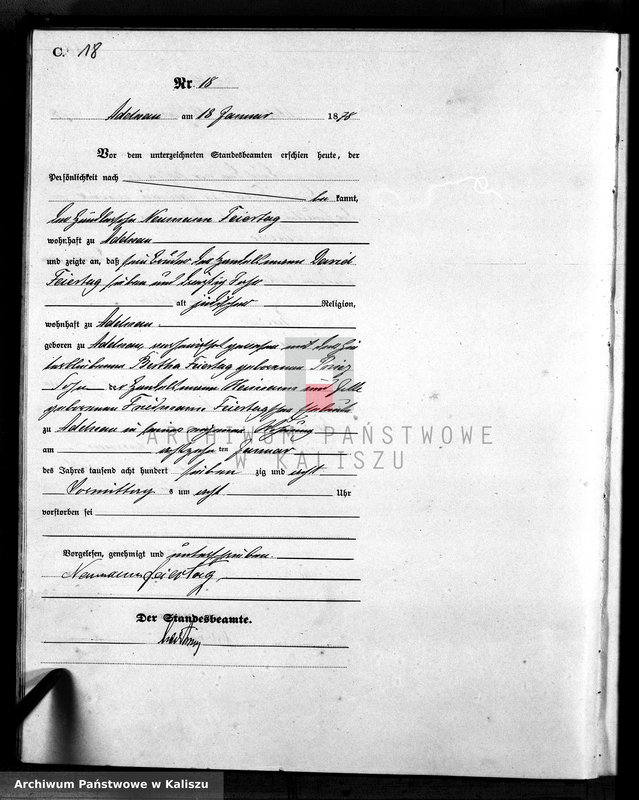 C. 18
Nr 18
Adelnau am 18 Januar 1878
Vor dem unterzeichneten Standesbeamten erschien heute, der
Persönlichkeit nach
be kannt,
der Neumann Feiertag
wohnhaft zu Adelnau
und zeigte an, daß sein Bruder der Handelsmann David
Feiertag sieben und Jahr
alt jüdischer Religion,
wohnhaft zu Adelnau
geboren zu Adelnau, verheirathet gewesen mit der
Bertha Feiertag geborenen Prinz
Sohn der Handelsmann und
geborenen Friedmann Feiertag
zu Adelnau in seiner Wohnung
am achtzehn ten Januar
des Jahrs tausend acht hundert sieben zig und acht
Vormittag s um acht Uhr
verstorben sei
Vorgelesen, genehmigt und unterschrieben.
Neumann Feiertag
Der Standesbeamte.
ARCHIWUM PAŃSTWOWE
W KALISZU
Archiwum Państwowe w Kaliszu